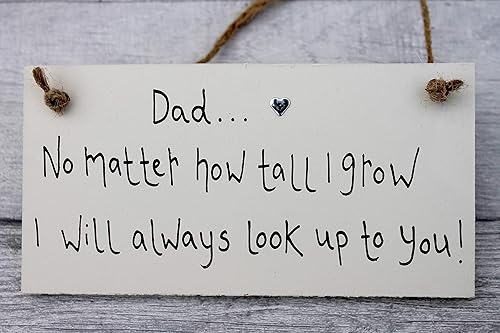 Dad...
No matter how tall I grow
I will always look up to you!